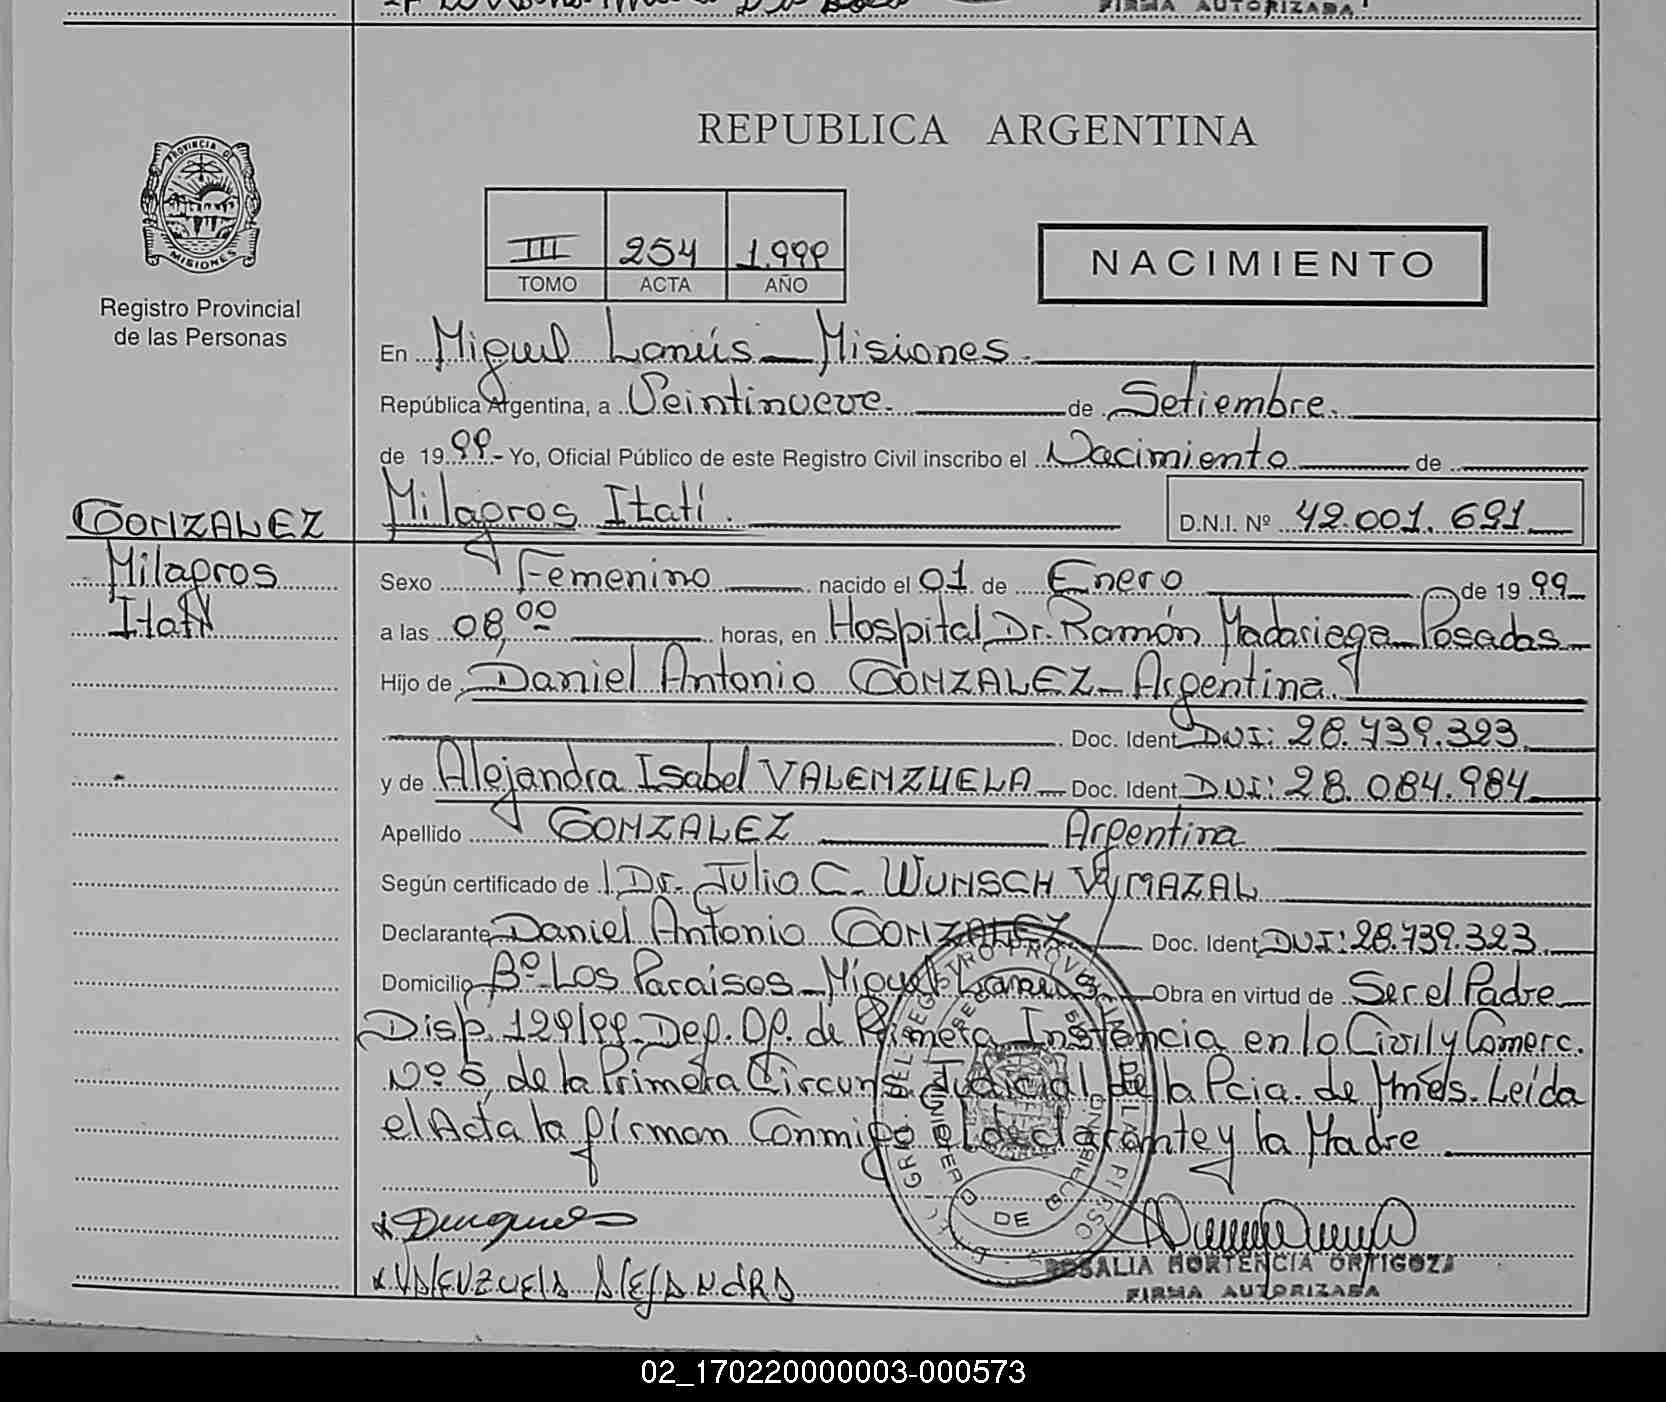 FIRMA AUTORIZADA
REPUBLICA ARGENTINA
PROVINCIA DE
MISIONES
Registro Provincial
de las Personas
III 254 1.999
TOMO ACTA AÑO
NACIMIENTO
En Miguel Lanús - Misiones.
República Argentina, a Veintinueve. de Setiembre.
de 1999.- Yo, Oficial Público de este Registro Civil inscribo el Nacimiento de
GONZALEZ
Milagros
Itatí
Milagros Itatí. D.N.I. Nº 42.001.691
Sexo Femenino nacido el 01 de Enero de 1999
a las 08,00 horas, en Hospital Dr. Ramón Madariaga Posadas
Hijo de Daniel Antonio GONZALEZ - Argentina.
Doc. Ident DNI: 28.739.323.
y de Alejandra Isabel VALENZUELA Doc. Ident DNI: 28.084.984
Apellido GONZALEZ Argentina
Según certificado de Dr. Julio C. WUNSCH VYMAZAL
Declarante Daniel Antonio GONZALEZ Doc. Ident. DNI: 28.739.323.
Domicilio Bº Los Paraisos - Miguel Lanús Obra en virtud de Ser el Padre
Disp. 129/99 - Def. Of. de Primera Instancia en lo Civil y Comerc.
Nº 5 de la Primera Circuns. Judicial de la Pcia. de Mnes. Leída
el Acta la firman Conmigo el declarante y la Madre
VALENZUELA ALEJANDRA
ROSALIA HORTENCIA ORTIGOZA
FIRMA AUTORIZADA
02_170220000003-000573